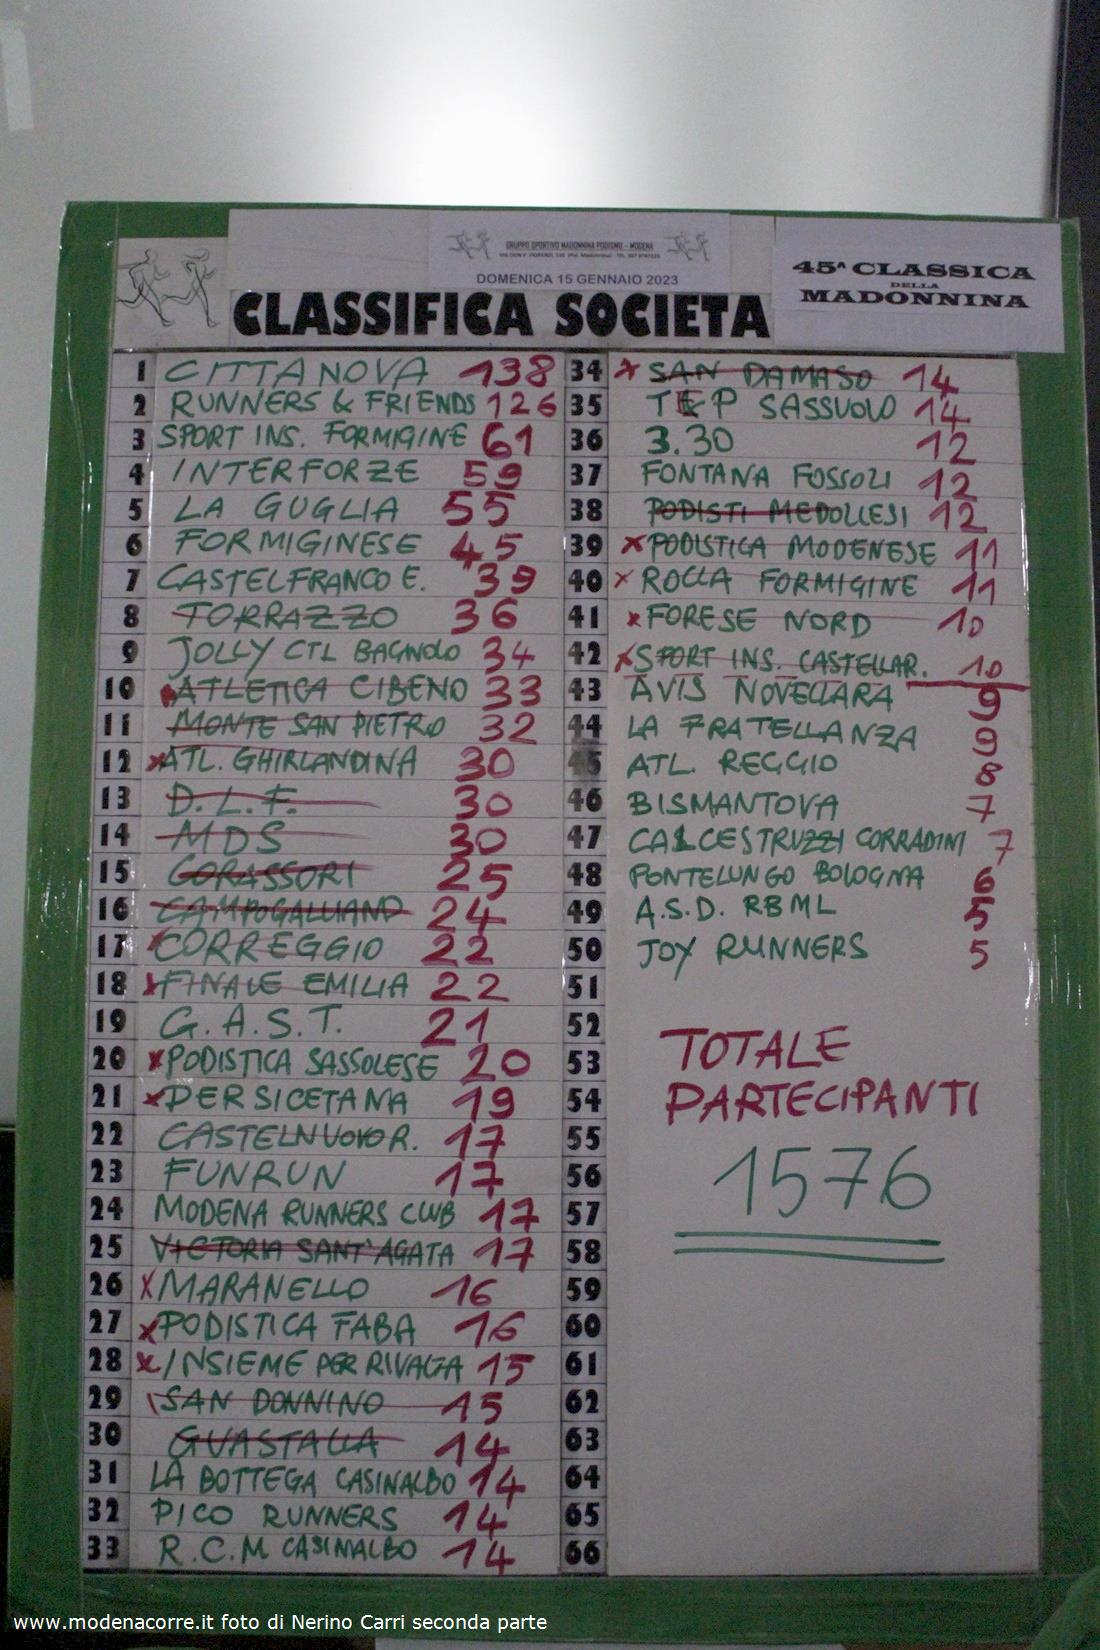 GRUPPO SPORTIVO MADONNINA PODISMO - MODENA
DOMENICA 15 GENNAIO 2023
CLASSIFICA SOCIETA
45ª CLASSICA
DELLA
MADONNINA
1 CITTANOVA 138
2 RUNNERS & FRIENDS 126
3 SPORT INS. FORMIGINE 61
4 INTERFORZE 59
5 LA GUGLIA 55
6 FORMIGINESE 45
7 CASTELFRANCO E. 39
8 TORRAZZO 36
9 JOLLY CTL BAGNOLO 34
10 ATLETICA CIBENO 33
11 MONTE SAN PIETRO 32
12 ATL. GHIRLANDINA 30
13 D.L.F. 30
14 MDS 30
15 CORASSORI 25
16 CAMPOGALLIANO 24
17 CORREGGIO 22
18 FINALE EMILIA 22
19 G.A.S.T. 21
20 PODISTICA SASSOLESE 20
21 PERSICETANA 19
22 CASTELNUOVO R. 17
23 FUNRUN 17
24 MODENA RUNNERS CLUB 17
25 VICTORIA SANT'AGATA 17
26 MARANELLO 16
27 PODISTICA FABA 16
28 INSIEME PER RIVALTA 15
29 SAN DONNINO 15
30 GUASTALLA 14
31 LA BOTTEGA CASINALBO 14
32 PICO RUNNERS 14
33 R.C.M CASINALBO 14
34 SAN DAMASO 14
35 T&P SASSUOLO 14
36 3.30 12
37 FONTANA FOSSOLI 12
38 PODISTI MEDOLLESI 12
39 PODISTICA MODENESE 11
40 ROCCA FORMIGINE 11
41 FORESE NORD 10
42 SPORT INS. CASTELLAR. 10
43 AVIS NOVELLARA 9
44 LA FRATELLANZA 9
45 ATL. REGGIO 8
46 BISMANTOVA 7
47 CALCESTRUZZI CORRADINI 7
48 PONTELUNGO BOLOGNA 6
49 A.S.D. RBML 5
50 JOY RUNNERS 5
51
52
53
54
55
56
57
58
59
60
61
62
63
64
65
66
TOTALE
PARTECIPANTI
1576
www.modenacorre.it foto di Nerino Carri seconda parte